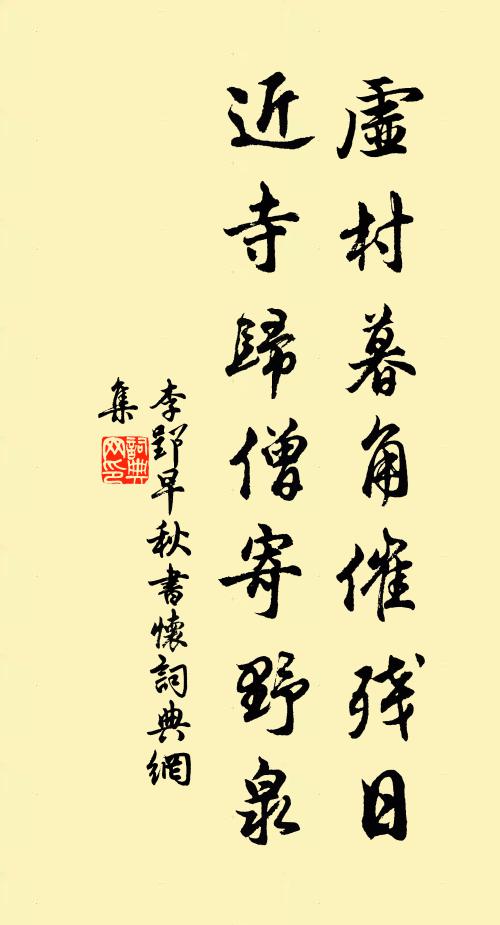 虛村暮角催殘日
近寺歸僧寄野泉
李郢早秋書懷詞典網
集
詞典
网印